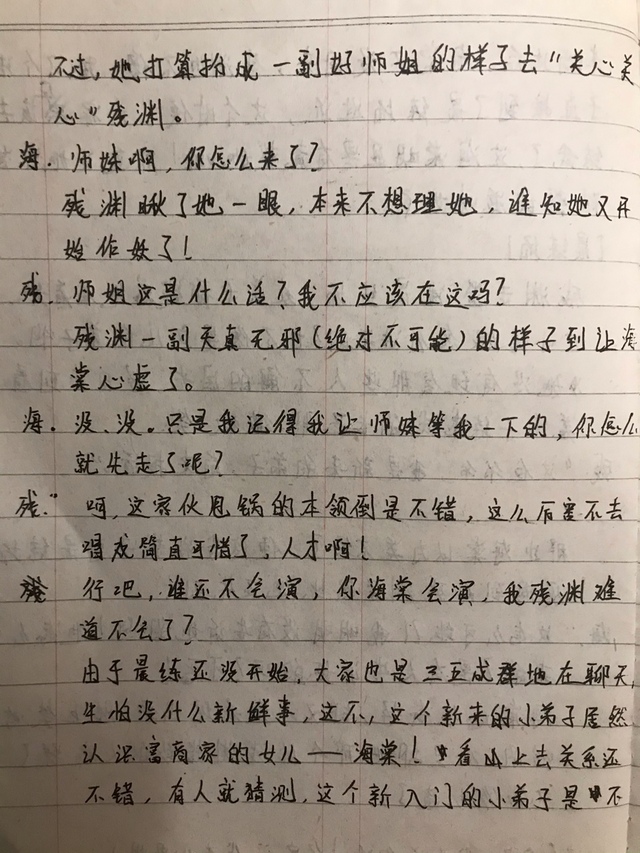 不过，她打算拍成一副好师姐的样子去"关心关
心"残渊。
海．师妹啊，你怎么来了？
残渊瞅了她一眼，本来不想理她，谁知她又开
始作妖了！
残．师姐这是什么话？我不应该在这吗？
残渊一副天真无邪（绝对不可能）的样子到让海
棠心虚了。
海．没、没。只是我记得我让师妹等我一下的，你怎么
就先走了呢？
残．"呵，这家伙甩锅的本领倒是不错，这么厉害不去
唱戏简直可惜了，人才啊！
行吧，谁还不会演，你海棠会演，我残渊难
道不会了？
由于晨练还没开始，大家也是三五成群地在聊天，
生怕没什么新鲜事，这不，这个新来的小弟子居然
认识富商家的女儿——海棠！看上去关系还
不错，有人就猜测，这个新入门的小弟子是不